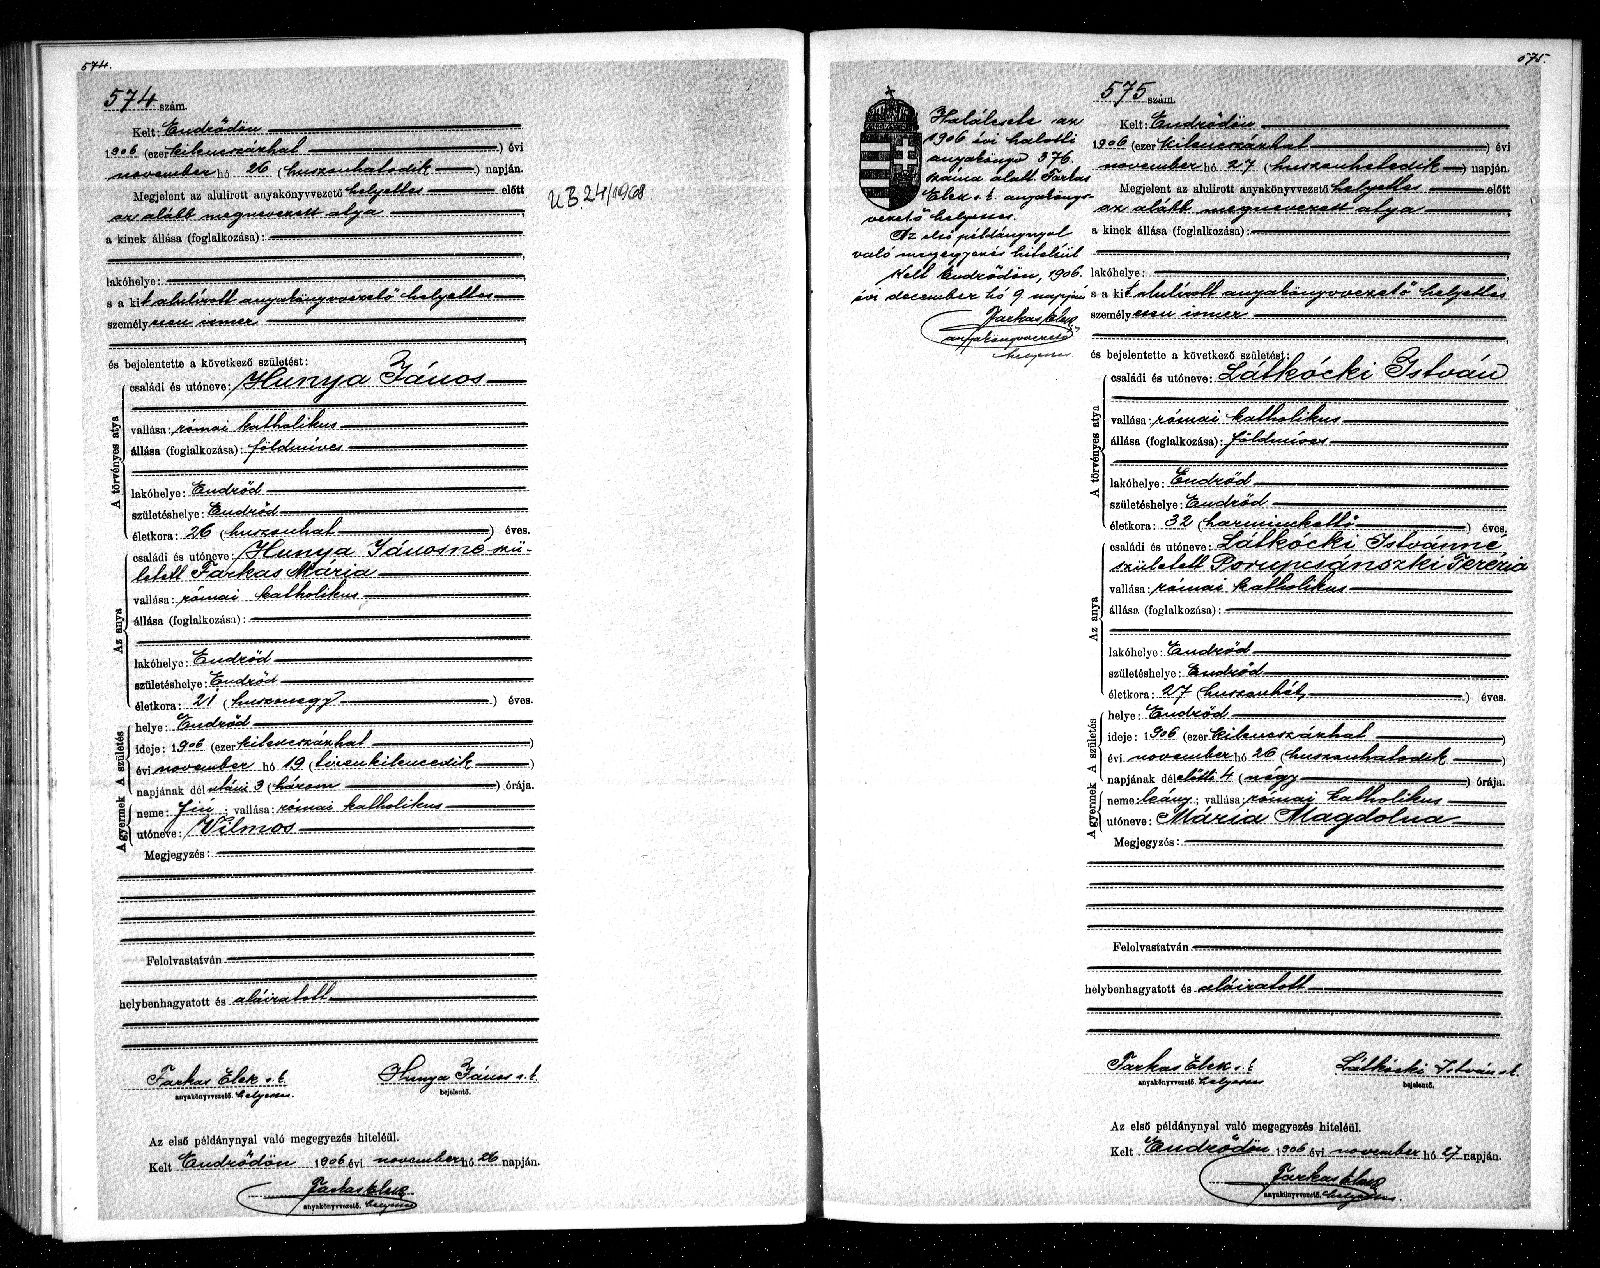 574.
574 szám.
Kelt: Endrődön
1906 (ezer kilencszázhat) évi
november hó 26 (huszonhatodik) napján.
Megjelent az alulirott anyakönyvvezető helyettes előtt
az alább megnevezett atya
a kinek állása (foglalkozása):
lakóhelye:
s a kit alulírott anyakönyvvezető helyettes
személyesen ismer
és bejelentette a következő születést:
A törvényes atya
családi és utóneve: Hunya János
vallása: római katholikus
állása (foglalkozása): földmíves
lakóhelye: Endrőd
születéshelye: Endrőd
életkora: 26 (huszonhat) éves.
Az anya
családi és utóneve: Hunya Jánosné szü-
letett Farkas Mária
vallása: római katholikus
állása (foglalkozása):
lakóhelye: Endrőd
születéshelye: Endrőd
életkora: 21 (huszonegy) éves.
A születés
helye: Endrőd
ideje: 1906 (ezer kilencszázhat)
évi november hó 19 (tizenkilencedik)
napjának dél utáni 3 (három) órája.
A gyermek
neme: fiú; vallása: római katholikus
utóneve: Vilmos
Megjegyzés:
Felolvastatván
helybenhagyatott és aláiratott
Farkas Elek s.k. Hunya János s.k.
anyakönyvvezető. helyettes. bejelentő.
Az első példánynyal való megegyezés hiteléül.
Kelt Endrődön 1906 évi november hó 26 napján.
Farkas Elek
anyakönyvvezető. helyettes
24/1968.
575.
Haláleset az
1906 évi halotti
anyakönyv 376.
száma alatt Farkas
Elek s.k. anyakönyv-
vezető helyettes.
Az első példánynyal
való megegyezés hiteléül
Kelt Endrődön, 1906.
évi december hó 9 napján
Farkas Elek
anyakönyvvezető
helyettes
575 szám.
Kelt: Endrődön
1906 (ezer kilencszázhat) évi
november hó 27 (huszonhetedik) napján.
Megjelent az alulirott anyakönyvvezető helyettes előtt
az alább megnevezett atya
a kinek állása (foglalkozása):
lakóhelye:
s a kit alulírott anyakönyvvezető helyettes
személyesen ismer
és bejelentette a következő születést:
A törvényes atya
családi és utóneve: Látkócki István
vallása: római katholikus
állása (foglalkozása): földmíves
lakóhelye: Endrőd
születéshelye: Endrőd
életkora: 32 (harminckettő) éves.
Az anya
családi és utóneve: Látkócki Istvánné,
született Porupcsánszki Terézia
vallása: római katholikus
állása (foglalkozása):
lakóhelye: Endrőd
születéshelye: Endrőd
életkora: 27 (huszonhét) éves.
A születés
helye: Endrőd
ideje: 1906 (ezer kilencszázhat)
évi november hó 26 (huszonhatodik)
napjának dél előtti 4 (négy) órája.
A gyermek
neme: leány; vallása: római katholikus
utóneve: Mária Magdolna
Megjegyzés:
Felolvastatván
helybenhagyatott és aláiratott
Farkas Elek s.k. Látkócki István s.k.
anyakönyvvezető. helyettes bejelentő.
Az első példánynyal való megegyezés hiteléül.
Kelt Endrődön 1906 évi november hó 27 napján.
Farkas Elek
anyakönyvvezető. helyettes.